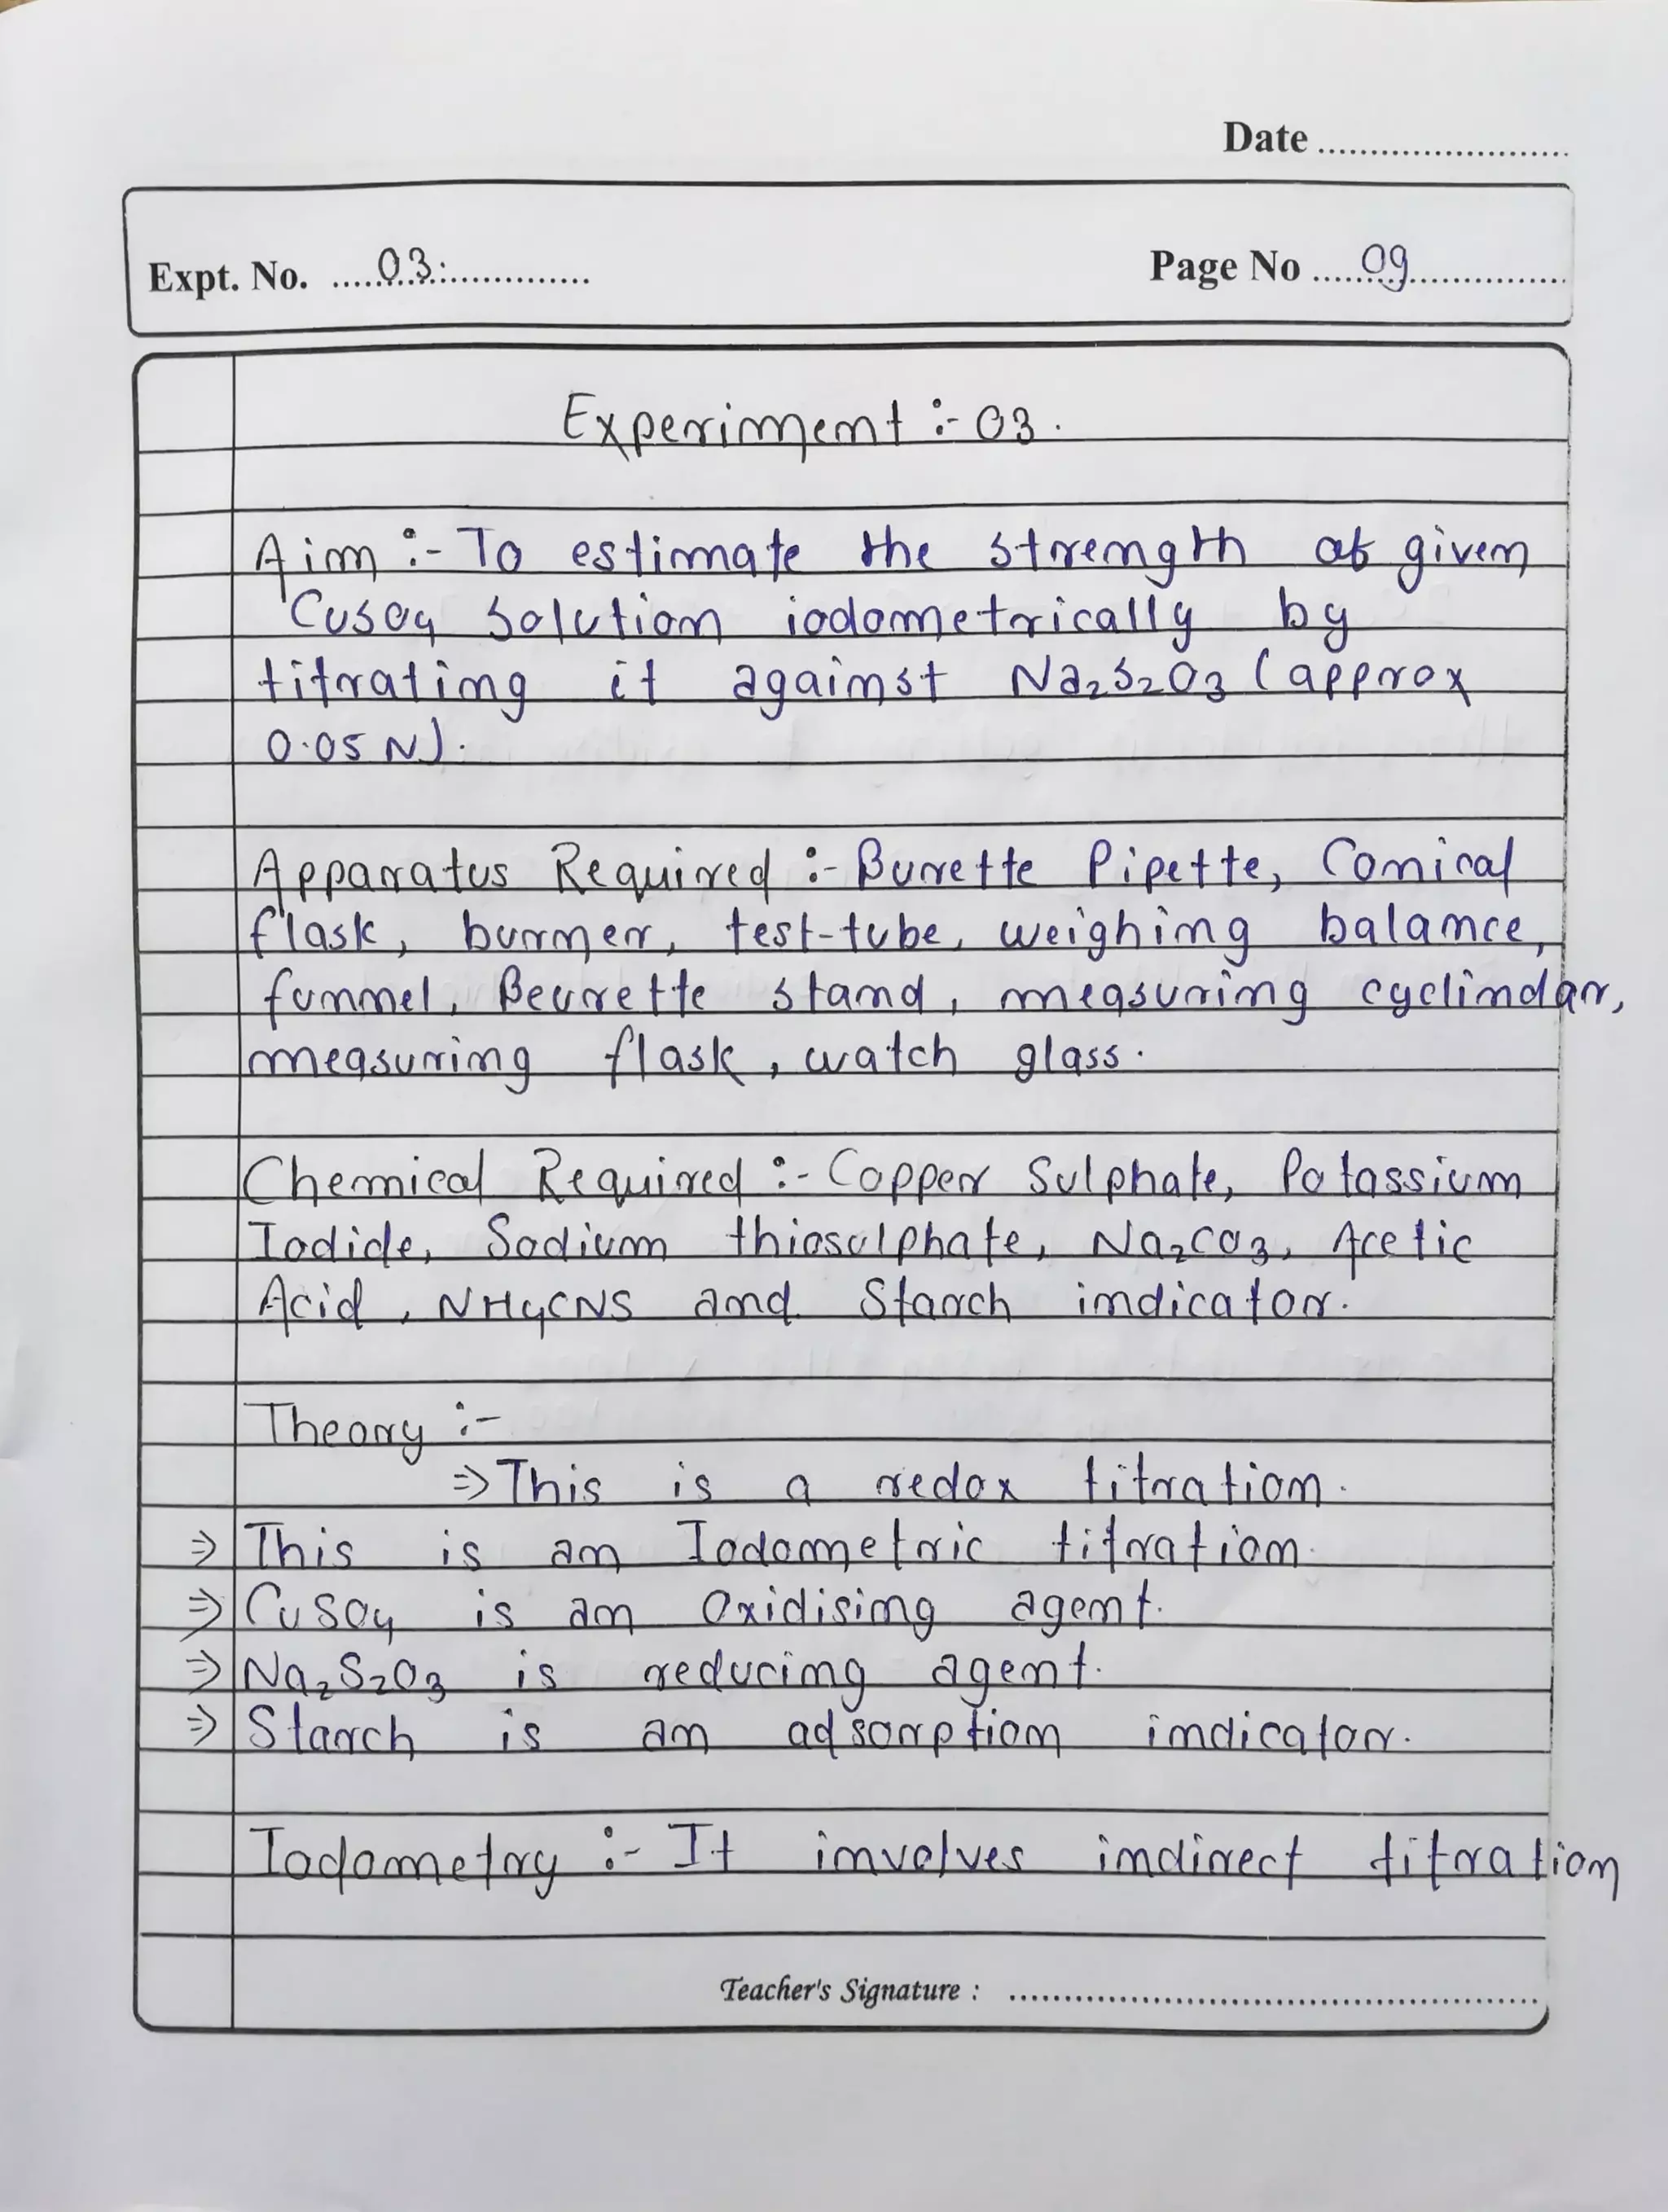 Date ........................
Expt. No. .....03:..............
Page No .....09................
Experiment :- 03.
Aim :- To estimate the strength of given
CuSO4 Solution iodometrically by
titrating it against Na2S2O3 (approx
0.05 N).
Apparatus Required :- Burette Pipette, Conical
flask, burner, test-tube, weighing balance,
funnel, Beurette stand, measuring cyclindar,
measuring flask, watch glass.
Chemical Required :- Copper Sulphate, Potassium
Iodide, Sodium thiosulphate, Na2CO3, Acetic
Acid, NH4CNS and Starch indicator.
Theory :-
⇒ This is a redox titration.
⇒ This is an Iodometric titration.
⇒ CuSO4 is an Oxidising agent.
⇒ Na2S2O3 is reducing agent.
⇒ Starch is an adsorption indicator.
Iodometry :- It involves indirect titration
Teacher's Signature : ..................................................